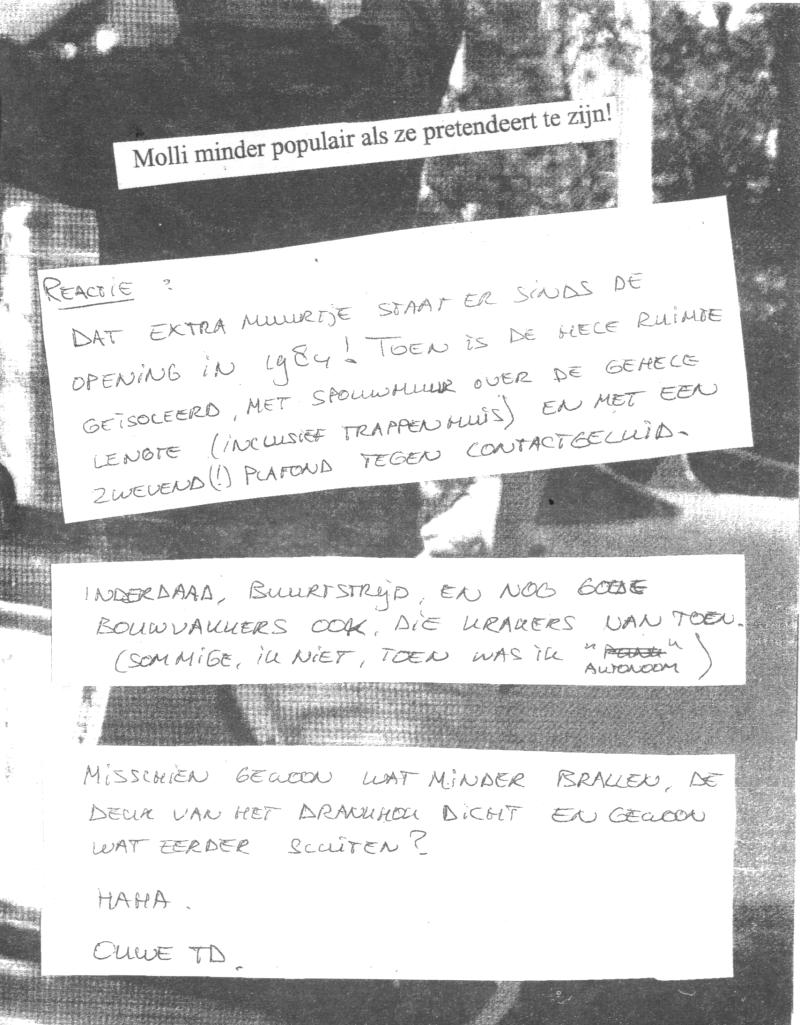 Molli minder populair als ze pretendeert te zijn!
REACTIE :
DAT EXTRA MUURTJE STAAT ER SINDS DE
OPENING IN 1984! TOEN IS DE HELE RUIMTE
GEÏSOLEERD, MET SPOUWMUUR OVER DE GEHELE
LENGTE (INCLUSIEF TRAPPENHUIS) EN MET EEN
ZWEVEND(!) PLAFOND TEGEN CONTACTGELUID.
INDERDAAD, BUURTSTRIJD, EN NOG GOEDE
BOUWVAKKERS OOK, DIE KRAKERS VAN TOEN.
(SOMMIGE, IK NIET, TOEN WAS IK " "
AUTONOOM)
MISSCHIEN GEWOON WAT MINDER BRALLEN, DE
DEUR VAN HET DRANKHOK DICHT EN GEWOON
WAT EERDER SLUITEN?
HAHA.
OUWE TD.